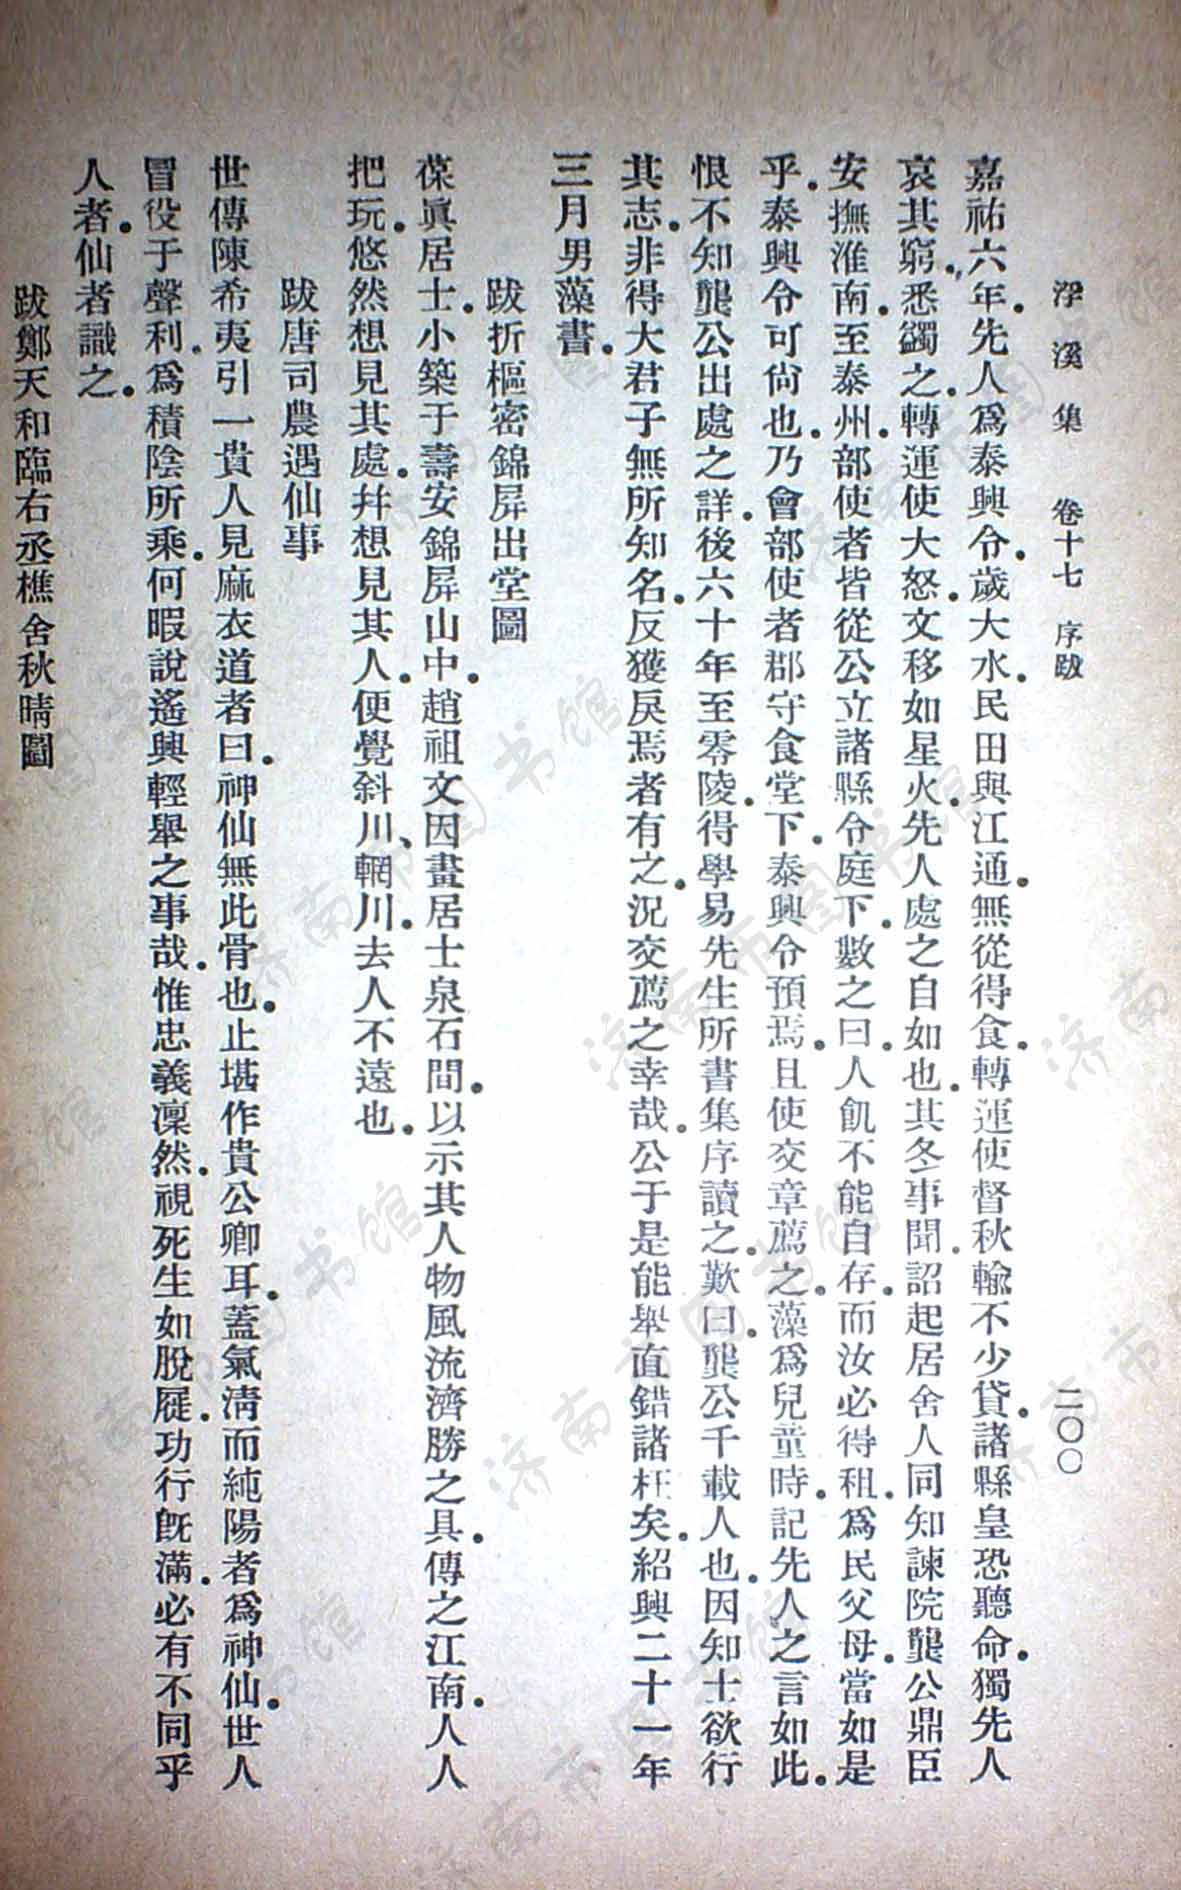 浮溪集 卷十七 序跋 二〇〇
嘉祐六年。先人爲泰興令。歲大水。民田與江通。無從得食。轉運使督秋輸不少貸。諸縣皇恐聽命。獨先人
哀其窮。悉蠲之。轉運使大怒。文移如星火。先人處之自如也。其冬。事聞。詔起居舍人同知諫院龔公鼎臣
安撫淮南。至泰州。部使者皆從。公立諸縣令庭下。數之曰。人飢不能自存。而汝必得租。爲民父母。當如是
乎。泰興令可尙也。乃會部使者郡守食堂下。泰興令預焉。且使交章薦之。藻爲兒童時。記先人之言如此。
恨不知龔公出處之詳。後六十年至零陵。得學易先生所書集序讀之。歎曰。龔公千載人也。因知士欲行
其志。非得大君子無所知名。反獲戾焉者有之。況交薦之幸哉。公于是能舉直錯諸枉矣。紹興二十一年
三月男藻書。
跋折樞密錦屏出堂圖
葆眞居士。小築于壽安錦屏山中。趙祖文因畫居士泉石間。以示其人物風流濟勝之具。傳之江南。人人
把玩。悠然想見其處。幷想見其人。便覺斜川、輞川。去人不遠也。
跋唐司農遇仙事
世傳陳希夷引一貴人見麻衣道者曰。神仙無此骨也。止堪作貴公卿耳。蓋氣淸而純陽者爲神仙。世人
冒役于聲利。爲積陰所乘。何暇說遙興輕舉之事哉。惟忠義凜然。視死生如脫屣。功行旣滿。必有不同乎
人者。仙者識之。
跋鄭天和臨右丞樵舍秋晴圖